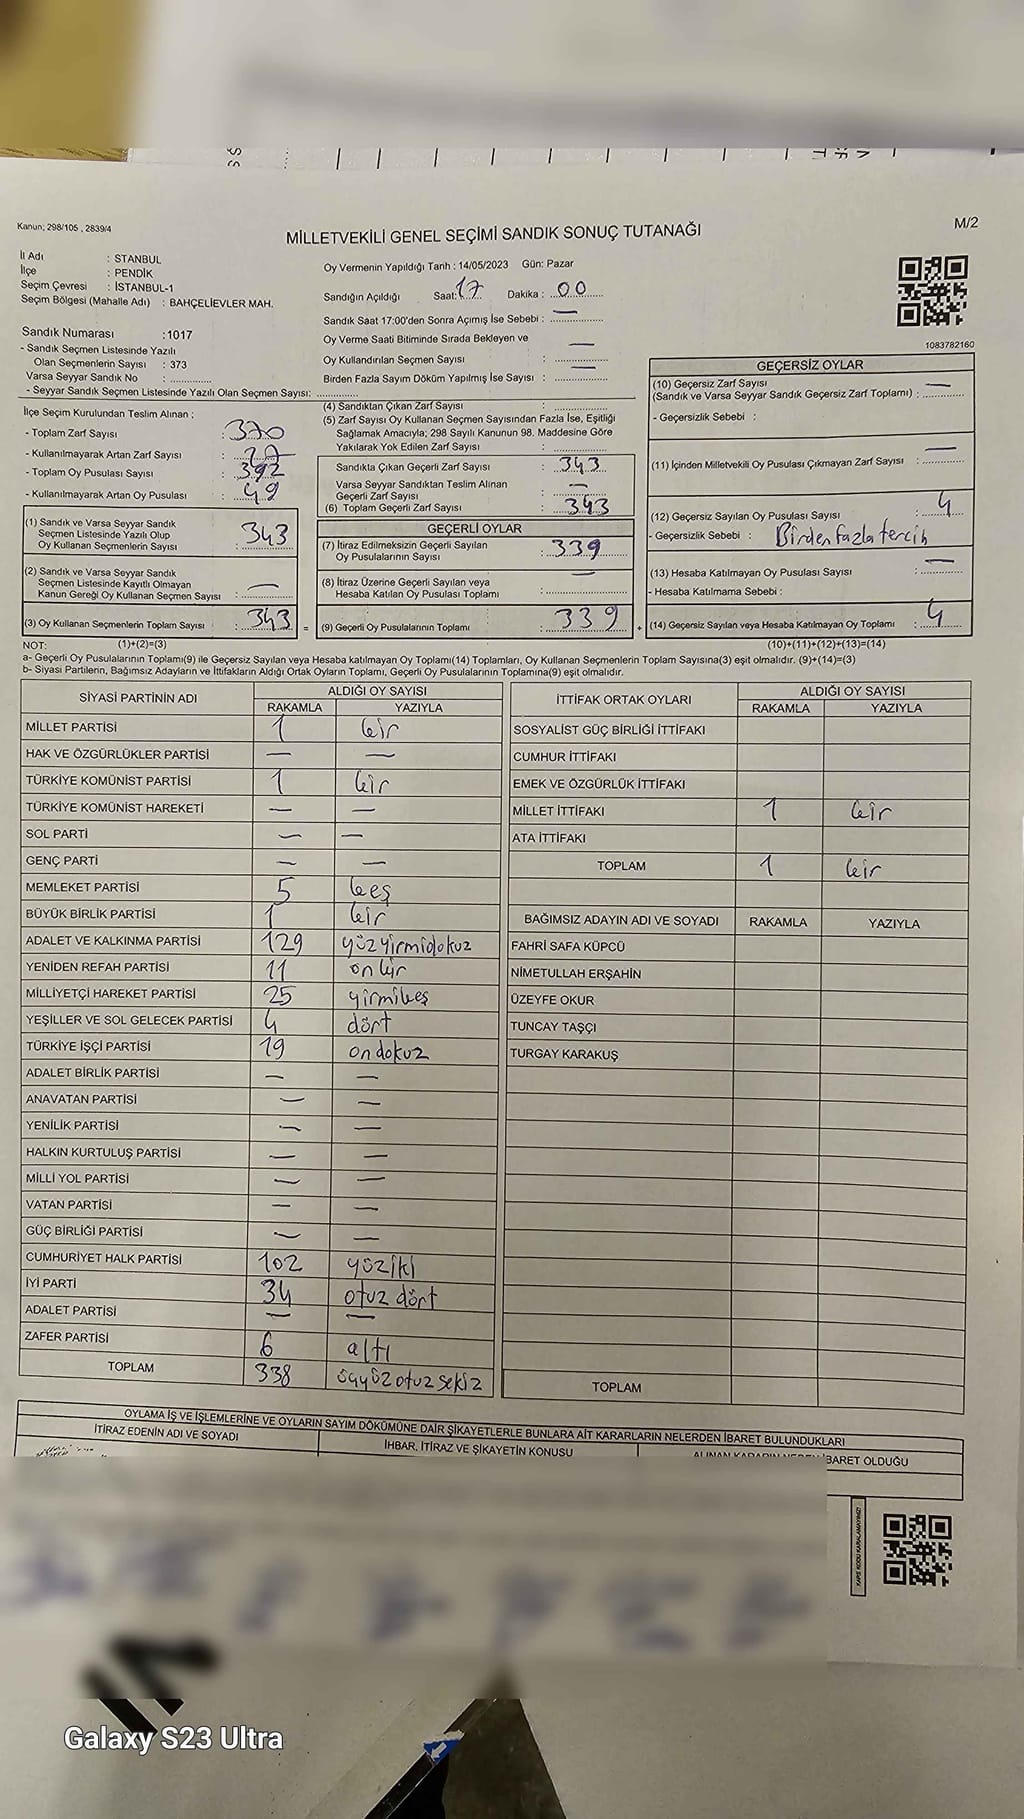 Kanun; 298/105 , 2839/4
M/2
MİLLETVEKİLİ GENEL SEÇİMİ SANDIK SONUÇ TUTANAĞI
İl Adı : STANBUL
İlçe : PENDİK
Seçim Çevresi : İSTANBUL-1
Seçim Bölgesi (Mahalle Adı) : BAHÇELİEVLER MAH.
Sandık Numarası :1017
- Sandık Seçmen Listesinde Yazılı
Olan Seçmenlerin Sayısı : 373
Varsa Seyyar Sandık No :
- Seyyar Sandık Seçmen Listesinde Yazılı Olan Seçmen Sayısı:
Oy Vermenin Yapıldığı Tarih : 14/05/2023 Gün: Pazar
Sandığın Açıldığı Saat: 17 Dakika : 00
Sandık Saat 17:00'den Sonra Açımış İse Sebebi : —
Oy Verme Saati Bitiminde Sırada Bekleyen ve
Oy Kullandırılan Seçmen Sayısı : —
Birden Fazla Sayım Döküm Yapılmış İse Sayısı : —
1083782160
İlçe Seçim Kurulundan Teslim Alınan ;
- Toplam Zarf Sayısı : 370
- Kullanılmayarak Artan Zarf Sayısı :
- Toplam Oy Pusulası Sayısı : 392
- Kullanılmayarak Artan Oy Pusulası : 49
(1) Sandık ve Varsa Seyyar Sandık
Seçmen Listesinde Yazılı Olup
Oy Kullanan Seçmenlerin Sayısı : 343
(2) Sandık ve Varsa Seyyar Sandık
Seçmen Listesinde Kayıtlı Olmayan
Kanun Gereği Oy Kullanan Seçmen Sayısı : —
(3) Oy Kullanan Seçmenlerin Toplam Sayısı : 343 =
(4) Sandıktan Çıkan Zarf Sayısı :
(5) Zarf Sayısı Oy Kullanan Seçmen Sayısından Fazla İse, Eşitliği
Sağlamak Amacıyla; 298 Sayılı Kanunun 98. Maddesine Göre
Yakılarak Yok Edilen Zarf Sayısı :
Sandıkta Çıkan Geçerli Zarf Sayısı : 343
Varsa Seyyar Sandıktan Teslim Alınan
Geçerli Zarf Sayısı : —
(6) Toplam Geçerli Zarf Sayısı : 343
GEÇERLİ OYLAR
(7) İtiraz Edilmeksizin Geçerli Sayılan
Oy Pusulalarının Sayısı : 339
(8) İtiraz Üzerine Geçerli Sayılan veya
Hesaba Katılan Oy Pusulası Toplamı : —
(9) Geçerli Oy Pusulalarının Toplamı : 339 +
GEÇERSİZ OYLAR
(10) Geçersiz Zarf Sayısı
(Sandık ve Varsa Seyyar Sandık Geçersiz Zarf Toplamı) : —
- Geçersizlik Sebebi :
(11) İçinden Milletvekili Oy Pusulası Çıkmayan Zarf Sayısı : —
(12) Geçersiz Sayılan Oy Pusulası Sayısı : 4
- Geçersizlik Sebebi : Birden fazla tercih
(13) Hesaba Katılmayan Oy Pusulası Sayısı : —
- Hesaba Katılmama Sebebi :
(14) Geçersiz Sayılan veya Hesaba Katılmayan Oy Toplamı : 4
NOT: (1)+(2)=(3) (10)+(11)+(12)+(13)=(14)
a- Geçerli Oy Pusulalarının Toplamı(9) ile Geçersiz Sayılan veya Hesaba katılmayan Oy Toplamı(14) Toplamları, Oy Kullanan Seçmenlerin Toplam Sayısına(3) eşit olmalıdır. (9)+(14)=(3)
b- Siyasi Partilerin, Bağımsız Adayların ve İttifakların Aldığı Ortak Oyların Toplamı, Geçerli Oy Pusulalarının Toplamına(9) eşit olmalıdır.
SİYASİ PARTİNİN ADI ALDIĞI OY SAYISI
RAKAMLA YAZIYLA
MİLLET PARTİSİ 1 bir
HAK VE ÖZGÜRLÜKLER PARTİSİ — —
TÜRKİYE KOMÜNİST PARTİSİ 1 bir
TÜRKİYE KOMÜNİST HAREKETİ — —
SOL PARTİ — —
GENÇ PARTİ — —
MEMLEKET PARTİSİ 5 beş
BÜYÜK BİRLİK PARTİSİ 1 bir
ADALET VE KALKINMA PARTİSİ 129 yüzyirmidokuz
YENİDEN REFAH PARTİSİ 11 onbir
MİLLİYETÇİ HAREKET PARTİSİ 25 yirmibeş
YEŞİLLER VE SOL GELECEK PARTİSİ 4 dört
TÜRKİYE İŞÇİ PARTİSİ 19 ondokuz
ADALET BİRLİK PARTİSİ — —
ANAVATAN PARTİSİ — —
YENİLİK PARTİSİ — —
HALKIN KURTULUŞ PARTİSİ — —
MİLLİ YOL PARTİSİ — —
VATAN PARTİSİ — —
GÜÇ BİRLİĞİ PARTİSİ — —
CUMHURİYET HALK PARTİSİ 102 yüziki
İYİ PARTİ 34 otuz dört
ADALET PARTİSİ — —
ZAFER PARTİSİ 6 altı
TOPLAM 338 üçyüz otuz sekiz
İTTİFAK ORTAK OYLARI ALDIĞI OY SAYISI
RAKAMLA YAZIYLA
SOSYALİST GÜÇ BİRLİĞİ İTTİFAKI
CUMHUR İTTİFAKI
EMEK VE ÖZGÜRLÜK İTTİFAKI
MİLLET İTTİFAKI 1 bir
ATA İTTİFAKI
TOPLAM 1 bir
BAĞIMSIZ ADAYIN ADI VE SOYADI RAKAMLA YAZIYLA
FAHRİ SAFA KÜPCÜ
NİMETULLAH ERŞAHİN
ÜZEYFE OKUR
TUNCAY TAŞÇI
TURGAY KARAKUŞ
TOPLAM
OYLAMA İŞ VE İŞLEMLERİNE VE OYLARIN SAYIM DÖKÜMÜNE DAİR ŞİKAYETLERLE BUNLARA AİT KARARLARIN NELERDEN İBARET BULUNDUKLARI
İTİRAZ EDENİN ADI VE SOYADI
İHBAR, İTİRAZ VE ŞİKAYETİN KONUSU
ALINAN KARARIN NEDEN İBARET OLDUĞU
Galaxy S23 Ultra